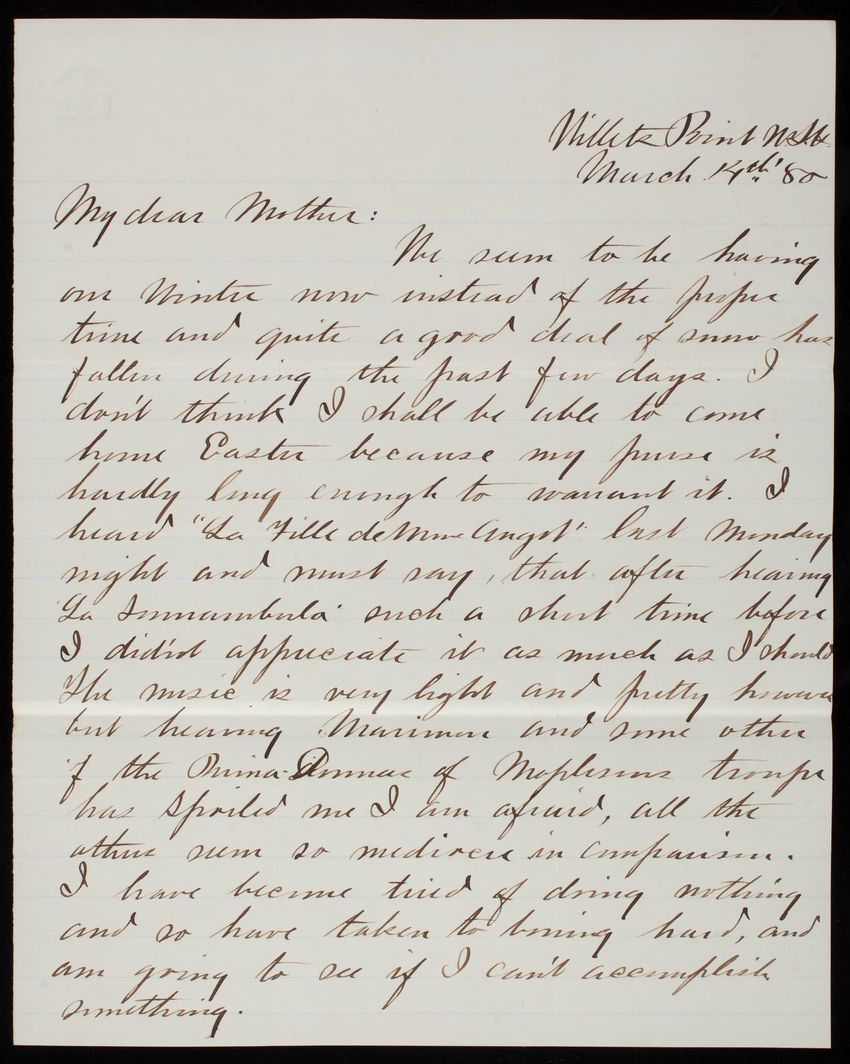 Willets Point N.Y.H.
March 14th '80
My dear Mother:
We seem to be having
our Winter now instead of the proper
time and quite a good deal of snow has
fallen during the past few days. I
don't think I shall be able to come
home Easter because my purse is
hardly long enough to warrant it. I
heard "La Fille de Mme Angot" last Monday
night and must say, that after hearing
'La Somnambula' such a short time before
I did'nt appreciate it as much as I should
The music is very light and pretty however
but hearing Marimon and some other
of the Prima-Donnae of Maplesons troupe
has spoiled me I am afraid, all the
others seem so mediocre in comparison.
I have become tired of doing nothing
and so have taken to boning hard, and
am going to see if I can't accomplish
something.